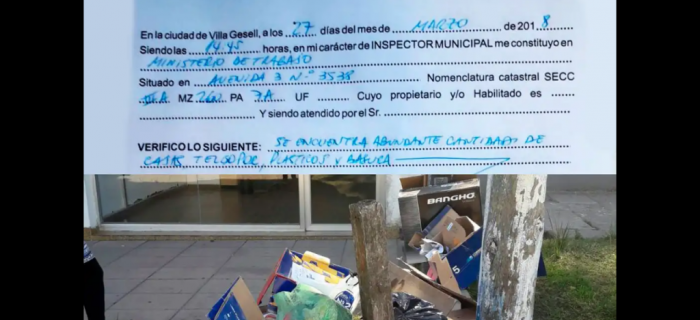 En la ciudad de Villa Gesell, a los ..27.. días del mes de ....MARZO.... de 2018
Siendo las ..14.45.. horas, en mi carácter de INSPECTOR MUNICIPAL me constituyo en
MINISTERIO DE TRABAJO
Situado en ..AVENIDA 3 N° 3538.. Nomenclatura catastral SECC
MZ PA 7A UF .......... Cuyo propietario y/o Habilitado es .......
Y siendo atendido por el Sr. ..........
VERIFICO LO SIGUIENTE: SE ENCUENTRA ABUNDANTE CANTIDAD DE
CAJAS, TELGOPOR, PLASTICOS Y BASURA
BANGHO
5